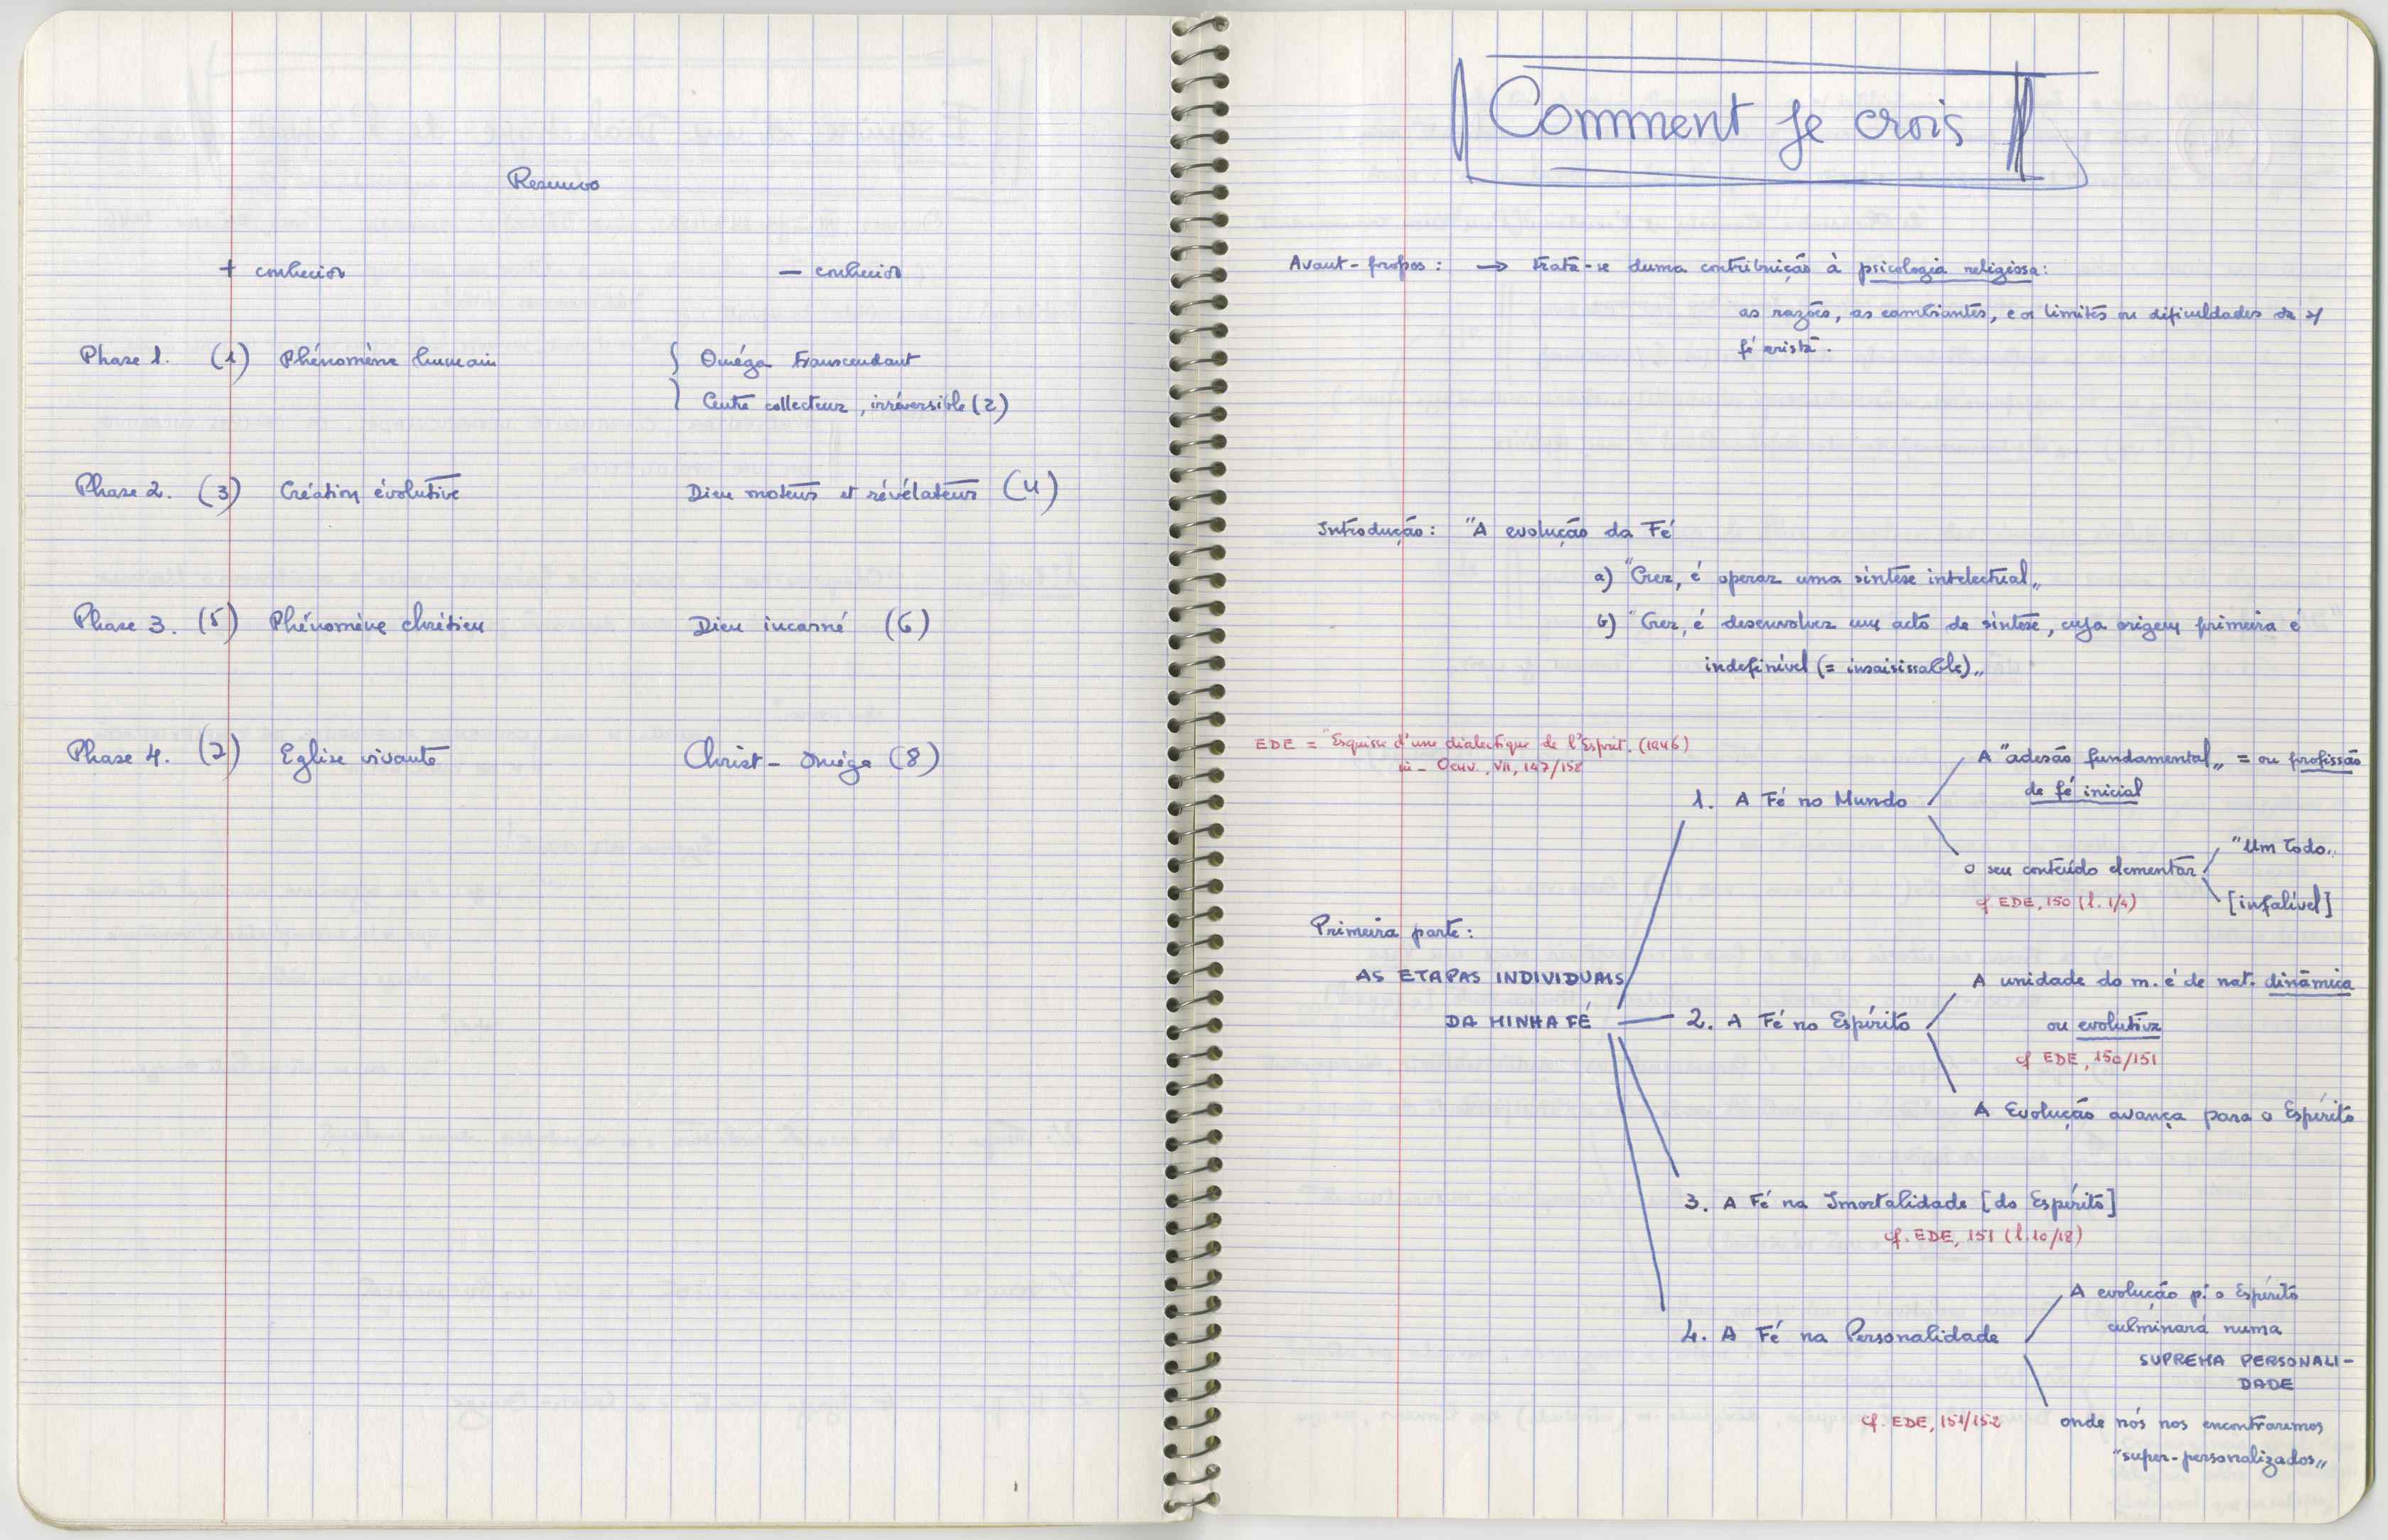 Resumo
+ conhecido — conhecido
Phase 1. (1) Phénomène humain { Oméga transcendant
Centre collecteur, irréversible (2)
Phase 2. (3) Création évolutive Dieu moteur et révélateur (4)
Phase 3. (5) Phénomène chrétien Dieu incarné (6)
Phase 4. (7) Eglise vivante Christ - Oméga (8)
Comment je crois
Avant-propos : → trata-se duma contribuição à psicologia religiosa:
as razões, as cambiantes, e os limites ou dificuldades da
fé cristã.
Introdução : "A evolução da Fé
a) "Crer, é operar uma síntese intelectual„
b) "Crer, é desenvolver um acto de síntese, cuja origem primeira é
indefinível (= insaisissable)„
EDE = "Esquisse d'une dialectique de l'Esprit. (1946)
in - Oeuv., VII, 147/158
A "adesão fundamental„ = ou profissão
de fé inicial
1. A Fé no Mundo
"Um Todo„
o seu conteúdo elementar
cf EDE, 150 (l. 1/4)
[infalível]
Primeira parte :
AS ETAPAS INDIVIDUAIS
DA MINHA FÉ
A unidade do m. é de nat. dinâmica
2. A Fé no Espírito
ou evolutiva
cf EDE, 150/151
A Evolução avança para o Espírito
3. A Fé na Imortalidade [do Espírito]
cf. EDE, 151 (l. 10/18)
A evolução p. o Espírito
culminará numa
4. A Fé na Personalidade
SUPREMA PERSONALI-
DADE
cf. EDE, 151/152
onde nós nos encontraremos
"super-personalizados„